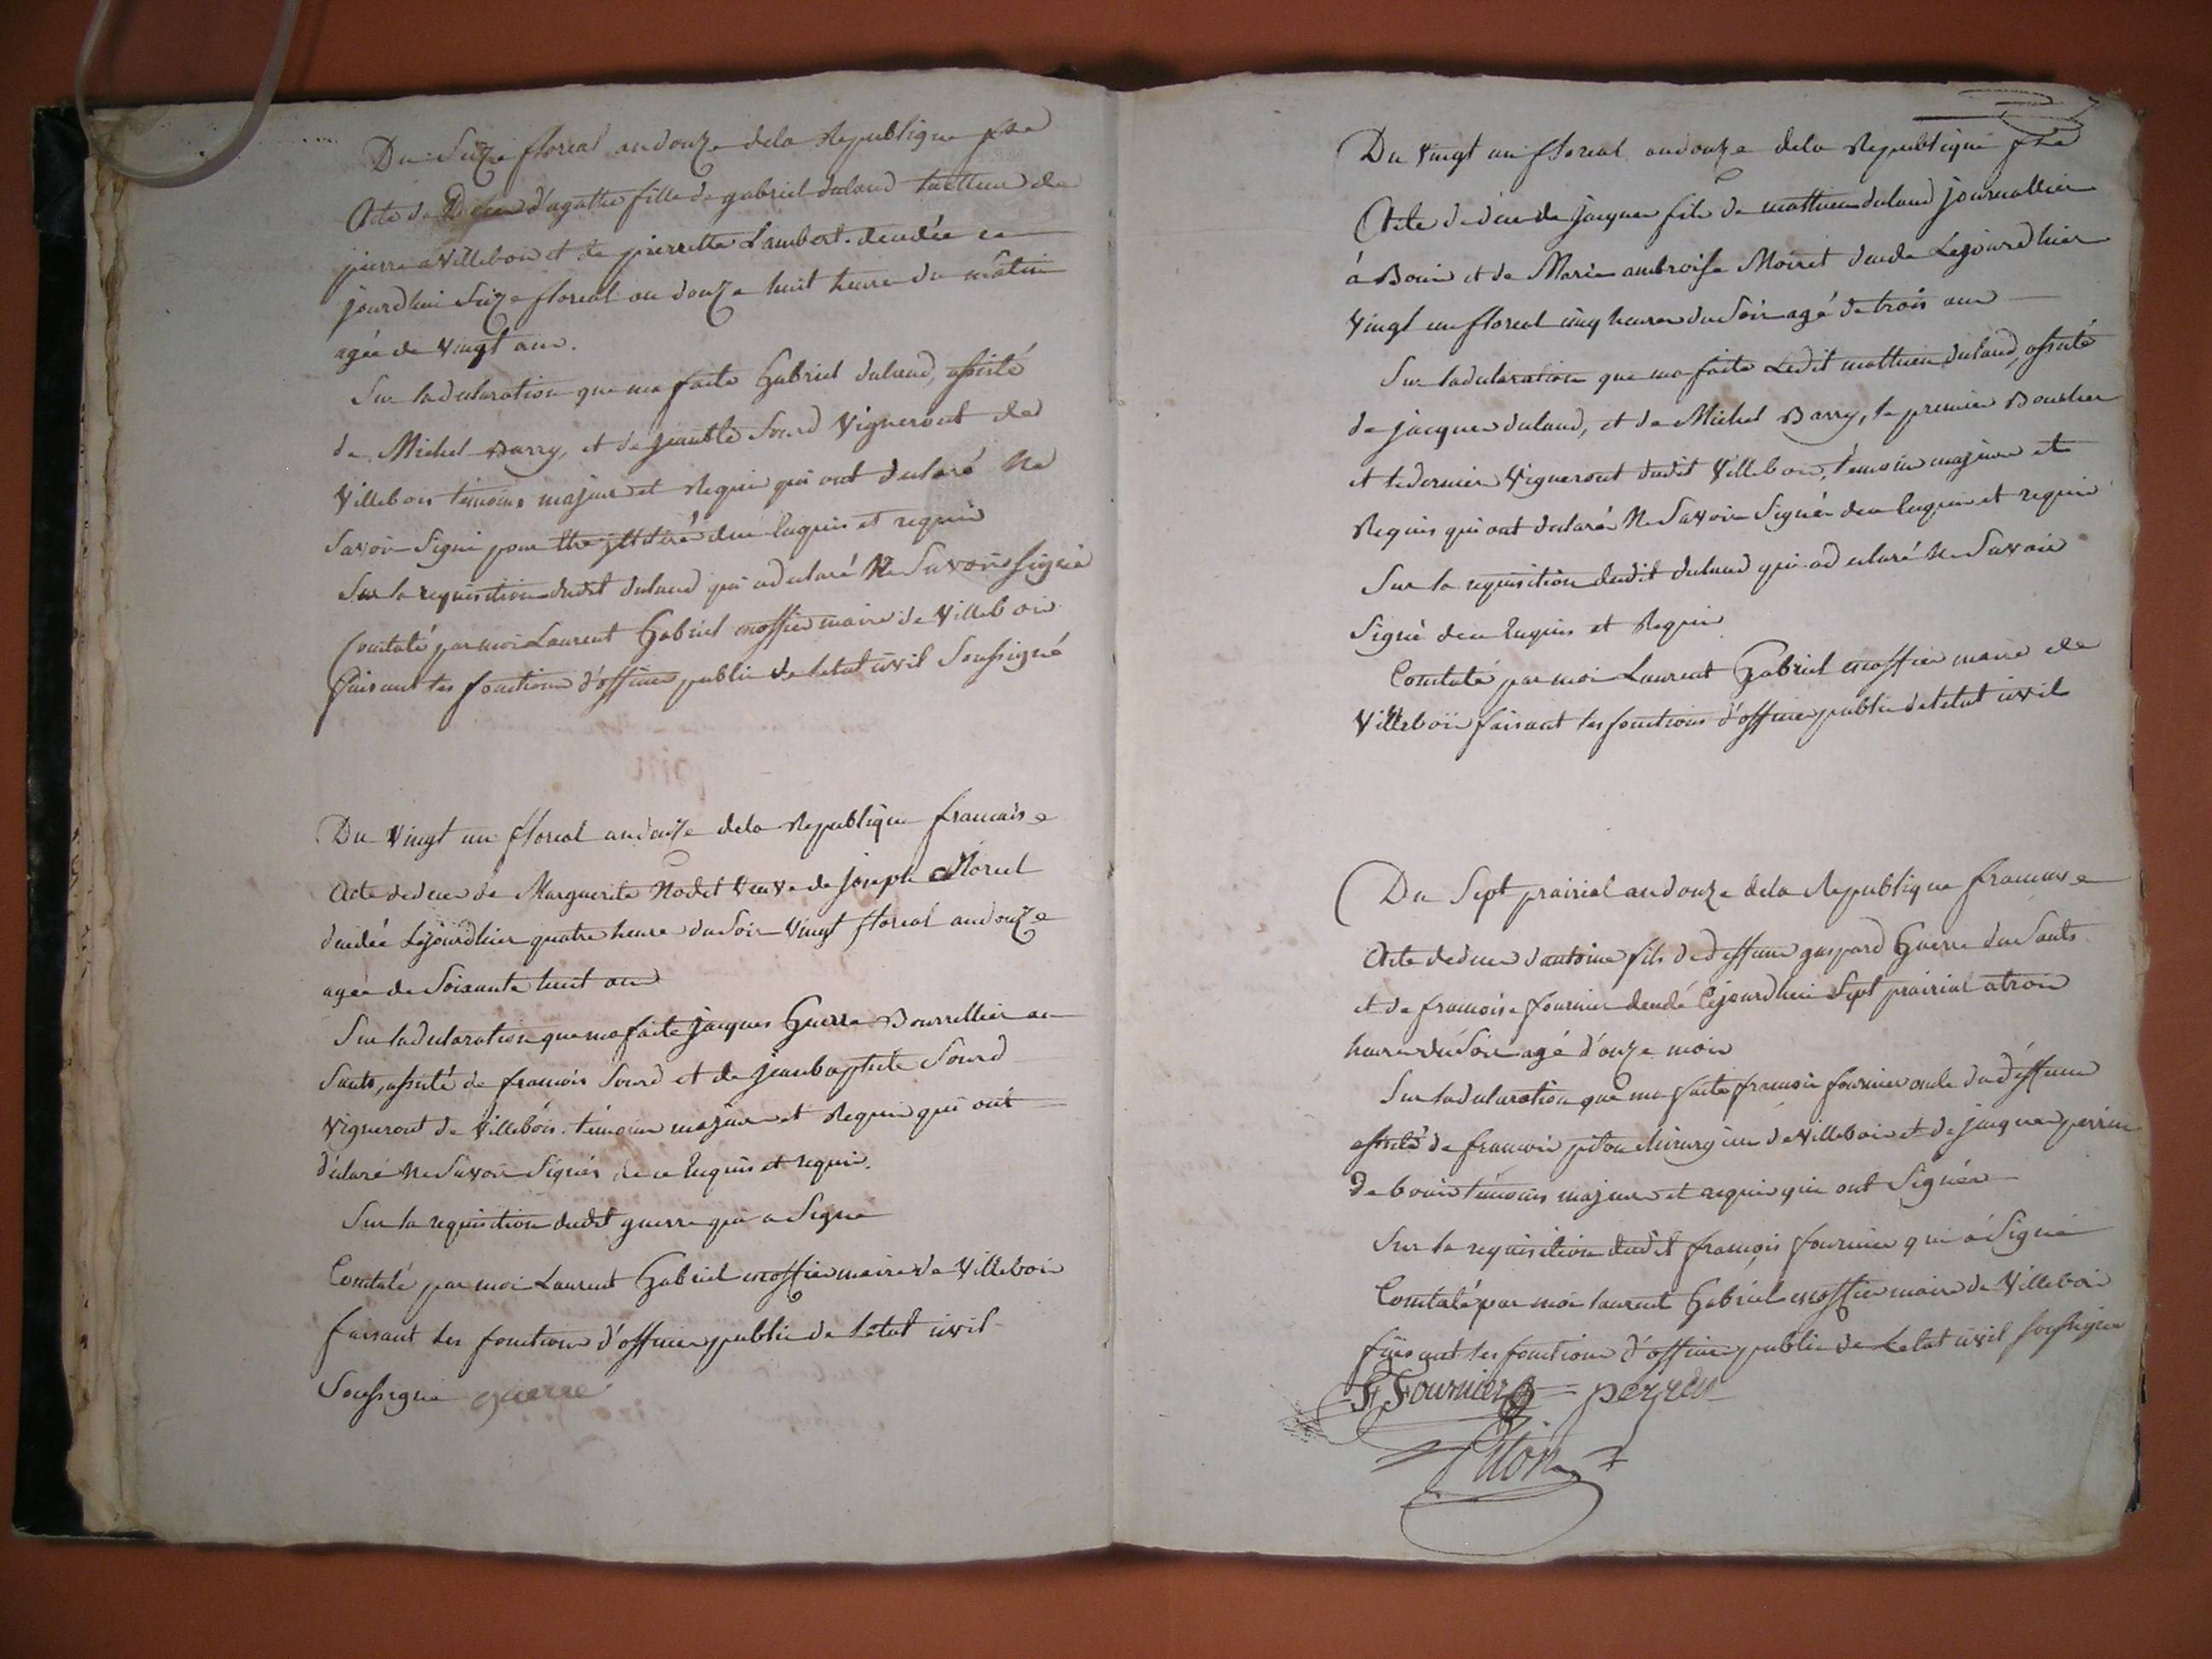 Du Seize floreal an douze de la Republique fse
Acte de Deces d'agathe fille de gabriel duland tailleur de
pierre a Villebois et de pierrette Lambert decedée ce
jourdhui Seize floreal an douze huit heure du matin
agée de Vingt ans.
Sur la declaration que ma faite Gabriel duland, assisté
de Michel Barry, et de jeanble Sourd Vigneront de
Villebois témoins majeur et Requis qui ont declaré Ne
Savoir Signé pour de ce Enquis et requis
Sur la requisition dudit duland qui a declaré Ne Savoir signé
Constaté par moi Laurent Gabriel maire de Villebois
faisant les fonctions d'officier public de letat civil Soussigné
Du Vingt un floreal an douze de la Republique francaise
Acte de deces de Marguerite Nodet Veuve de joseph Morel
decedée Lejourdhier quatre heure du Soir Vingt floreal an douze
agée de Soixante huit ans
Sur la declaration que ma faite jacques Guerre Bourrellier au
Sauts, assisté de francois Sourd et de jeanbaptiste Sourd
Vigneront de Villebois. témoins majeur et Requis qui ont
déclaré Ne Savoir Signés de ce Enquis et requis.
Sur la requisition dudit guerre qui a Signé
Constaté par moi Laurent Gabriel maire de Villebois
faisant les fonctions d'officier public de letat civil
Soussigné guerre
Du Vingt un floreal an douze de la Republique fse
Acte de deces de jacques fils de mathieu duland journallier
à Bouis et de Marie ambroise Moiret decede Lejourdhier
Vingt un floreal cinq heures du Soir agé de trois ans
Sur la declaration que ma faite Ledit mathieu duland, assisté
de jacques duland, et de Michel Barry, le premier Boucher
et le dernier Vigneront dudit Villebois, témoins majeur et
Requis qui ont declaré Ne Savoir Signér de ce Enquis et requis
Sur la requisition dudit duland qui a declaré Ne Savoir
Signé de ce Enquis et Requis
Constaté par moi Laurent Gabriel maire de
Villebois faisant les fonctions d'officier public de letat civil
Du Sept prairial an douze de la Republique francaise
Acte de deces d'antoine fils de deffunt gaspard Guerre du Sauts
et de francoise fournier decedé Cejourdhui Sept prairial a trois
heures du Soir agé d'onze mois
Sur la declaration que ma faite francois fournier oncle du deffunt
assisté de francois piton chirurgien de Villebois et de jacques perrin
de bouis témoins majeur et requis qui ont Signés
Sur la requisition dudit françois fournier qui à Signé
Constaté par moi laurent Gabriel maire de Villebois
faisant les fonctions d'officier public de Letat civil soussigné
F Fournier perrin
Piton